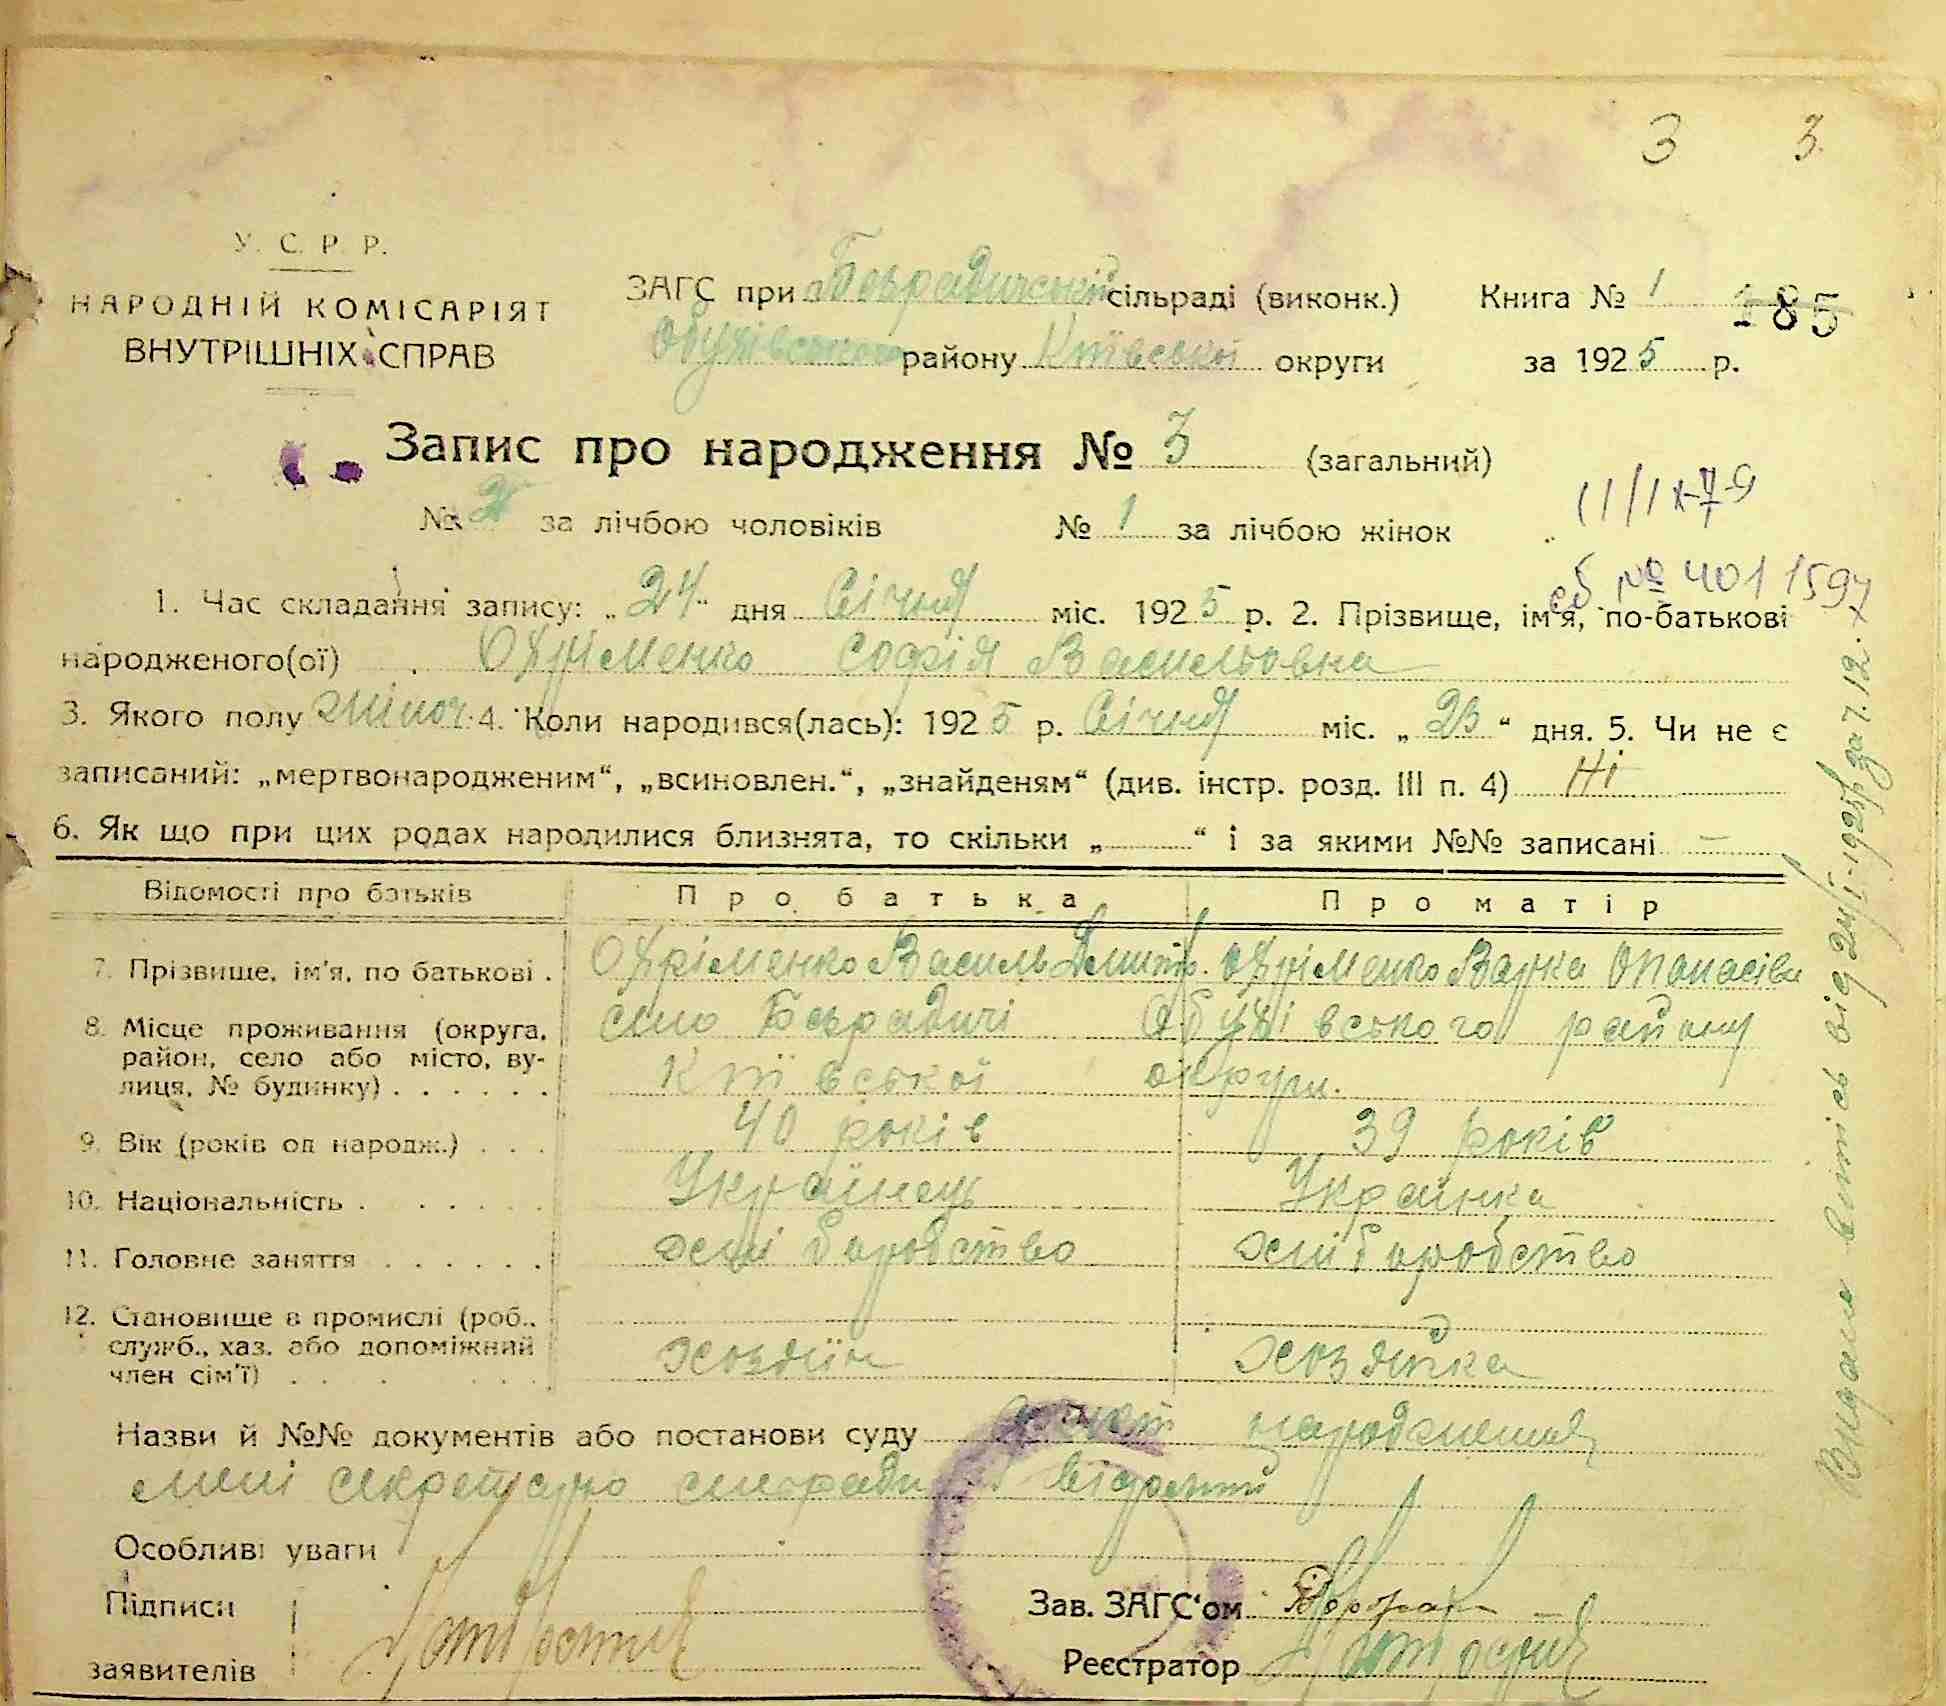 3 3.
У. С. Р. Р.
НАРОДНІЙ КОМІСАРІЯТ
ВНУТРІШНІХ СПРАВ
ЗАГС при Безрадичській сільраді (виконк.) Книга № 1 185
Обухівського району Київської округи за 1925 р.
Запис про народження № 3 (загальний)
№ 2 за лічбою чоловіків № 1 за лічбою жінок
11/IX-79
№ 4011597
1. Час складання запису: „24“ дня Січня міс. 1925 р. 2. Прізвище, ім'я, по-батькові
народженого(ої) Охріменко Софія Васильовна
3. Якого полу жіноч. 4. Коли народився(лась): 1925 р. Січня міс. „23“ дня. 5. Чи не є
записаний: „мертвонародженим“, „всиновлен.“, „знайденям“ (див. інстр. розд. III п. 4) Ні
6. Як що при цих родах народилися близнята, то скільки „ “ і за якими №№ записані —
Відомості про батьків Про батька Про матір
7. Прізвище, ім'я, по батькові . Охріменко Василь Дмитр. Охріменко Варка Опанасівн
8. Місце проживання (округа, село Безрадичі Обухівського району
район, село або місто, ву-
лиця, № будинку) . . . . . . Київської округи.
9. Вік (років од народж.) . . . 40 років 39 років
10. Національність . . . . . . Українець Українка
11. Головне заняття . . . . . . хліборобство хліборобство
12. Становище в промислі (роб.,
служб., хаз. або допоміжний хозяїн хозяйка
член сім'ї) . . . . . .
Назви й №№ документів або постанови суду факт народження
мені секретарю сільради відомий
Особливі уваги
Підписи
заявителів
Зав. ЗАГС'ом
Реєстратор
Видано витись від 24/I-1925р за 7.12.